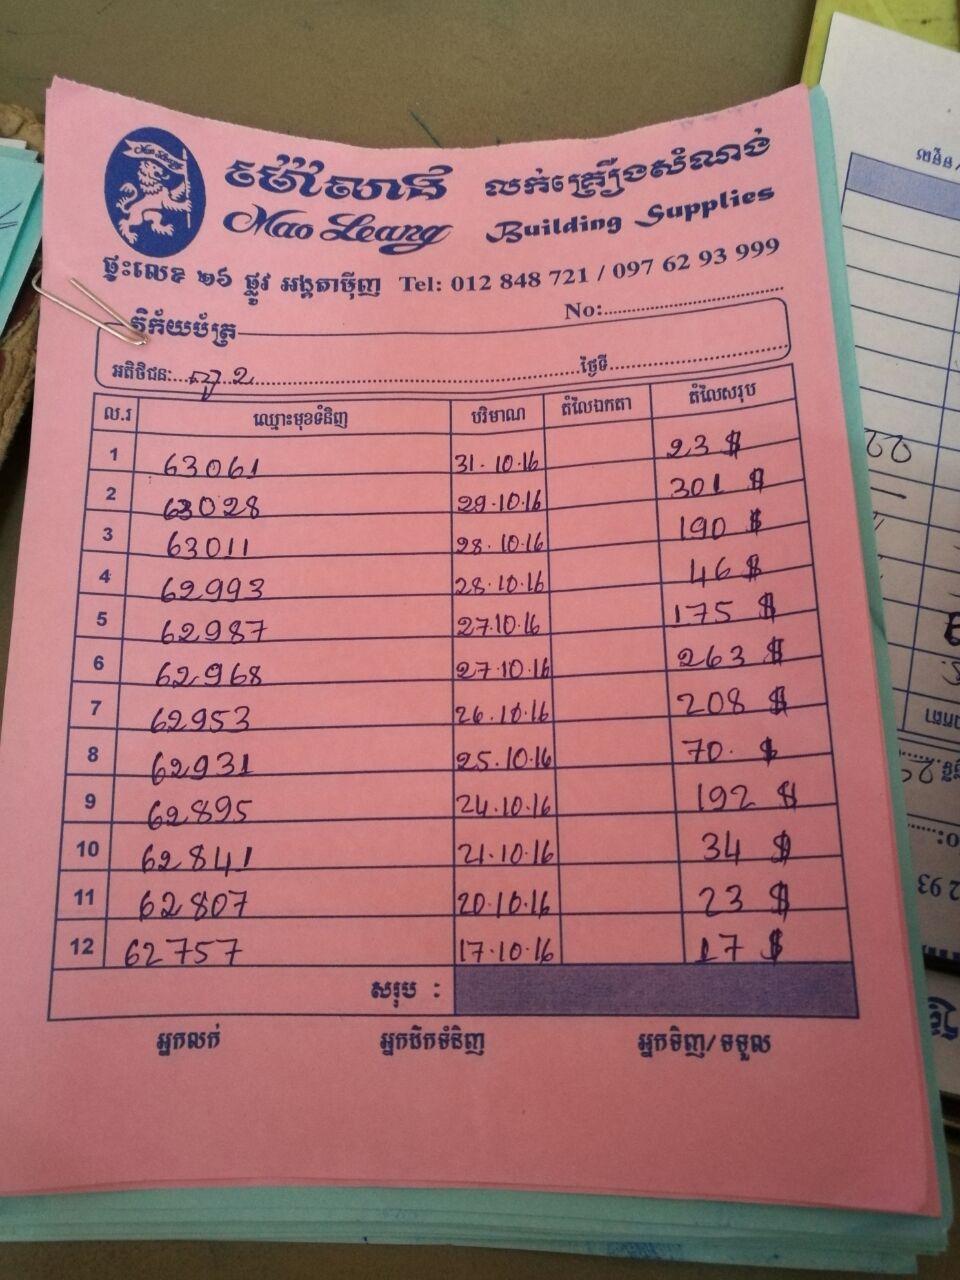 Mao Leang
ម៉ៅលាង លក់គ្រឿងសំណង់
Mao Leang Building Supplies
ផ្ទះលេខ ២៦ ផ្លូវ អង្គតាម៉ីញ Tel: 012 848 721 / 097 62 93 999
No:
វិក័យប័ត្រ
អតិថិជនៈ ថ្ងៃទី
ល.រ ឈ្មោះមុខទំនិញ បរិមាណ តំលៃឯកតា តំលៃសរុប
1 63061 31.10.16 23 $
2 63028 29.10.16 301 $
3 63011 28.10.16 190 $
4 62993 28.10.16 46 $
5 62987 27.10.16 175 $
6 62968 27.10.16 263 $
7 62953 26.10.16 208 $
8 62931 25.10.16 70. $
9 62895 24.10.16 192 $
10 62841 21.10.16 34 $
11 62807 20.10.16 23 $
12 62757 17.10.16 17 $
សរុប :
អ្នកលក់ អ្នកដឹកទំនិញ អ្នកទិញ/ទទួល